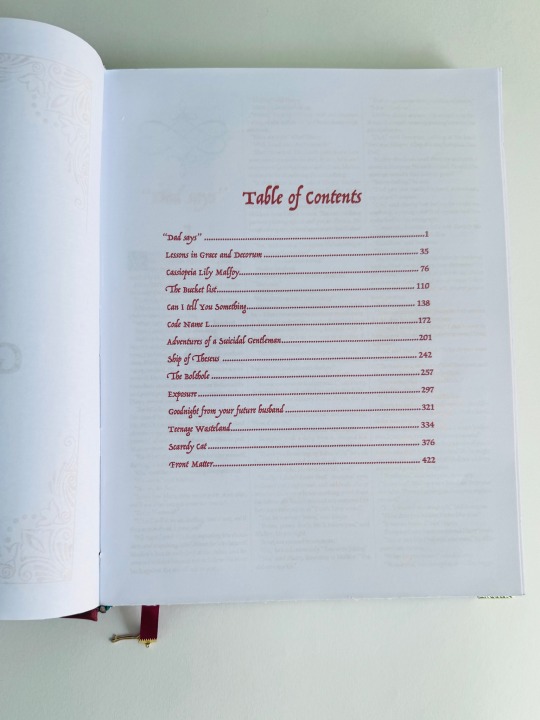 Table of Contents
“Dad says” ........................................1
Lessons in Grace and Decorum ........................................ 35
Cassiopeia Lily Malfoy........................................ 76
The Bucket list........................................ 110
Can I tell You Something........................................ 138
Code Name L........................................172
Adventures of a Suicidal Gentleman........................................201
Ship of Theseus ........................................ 242
The Bolthole ........................................ 257
Exposure ........................................ 297
Goodnight from your future husband ........................................ 321
Teenage Wasteland........................................ 334
Scaredy Cat ........................................ 376
Front Matter........................................ 422